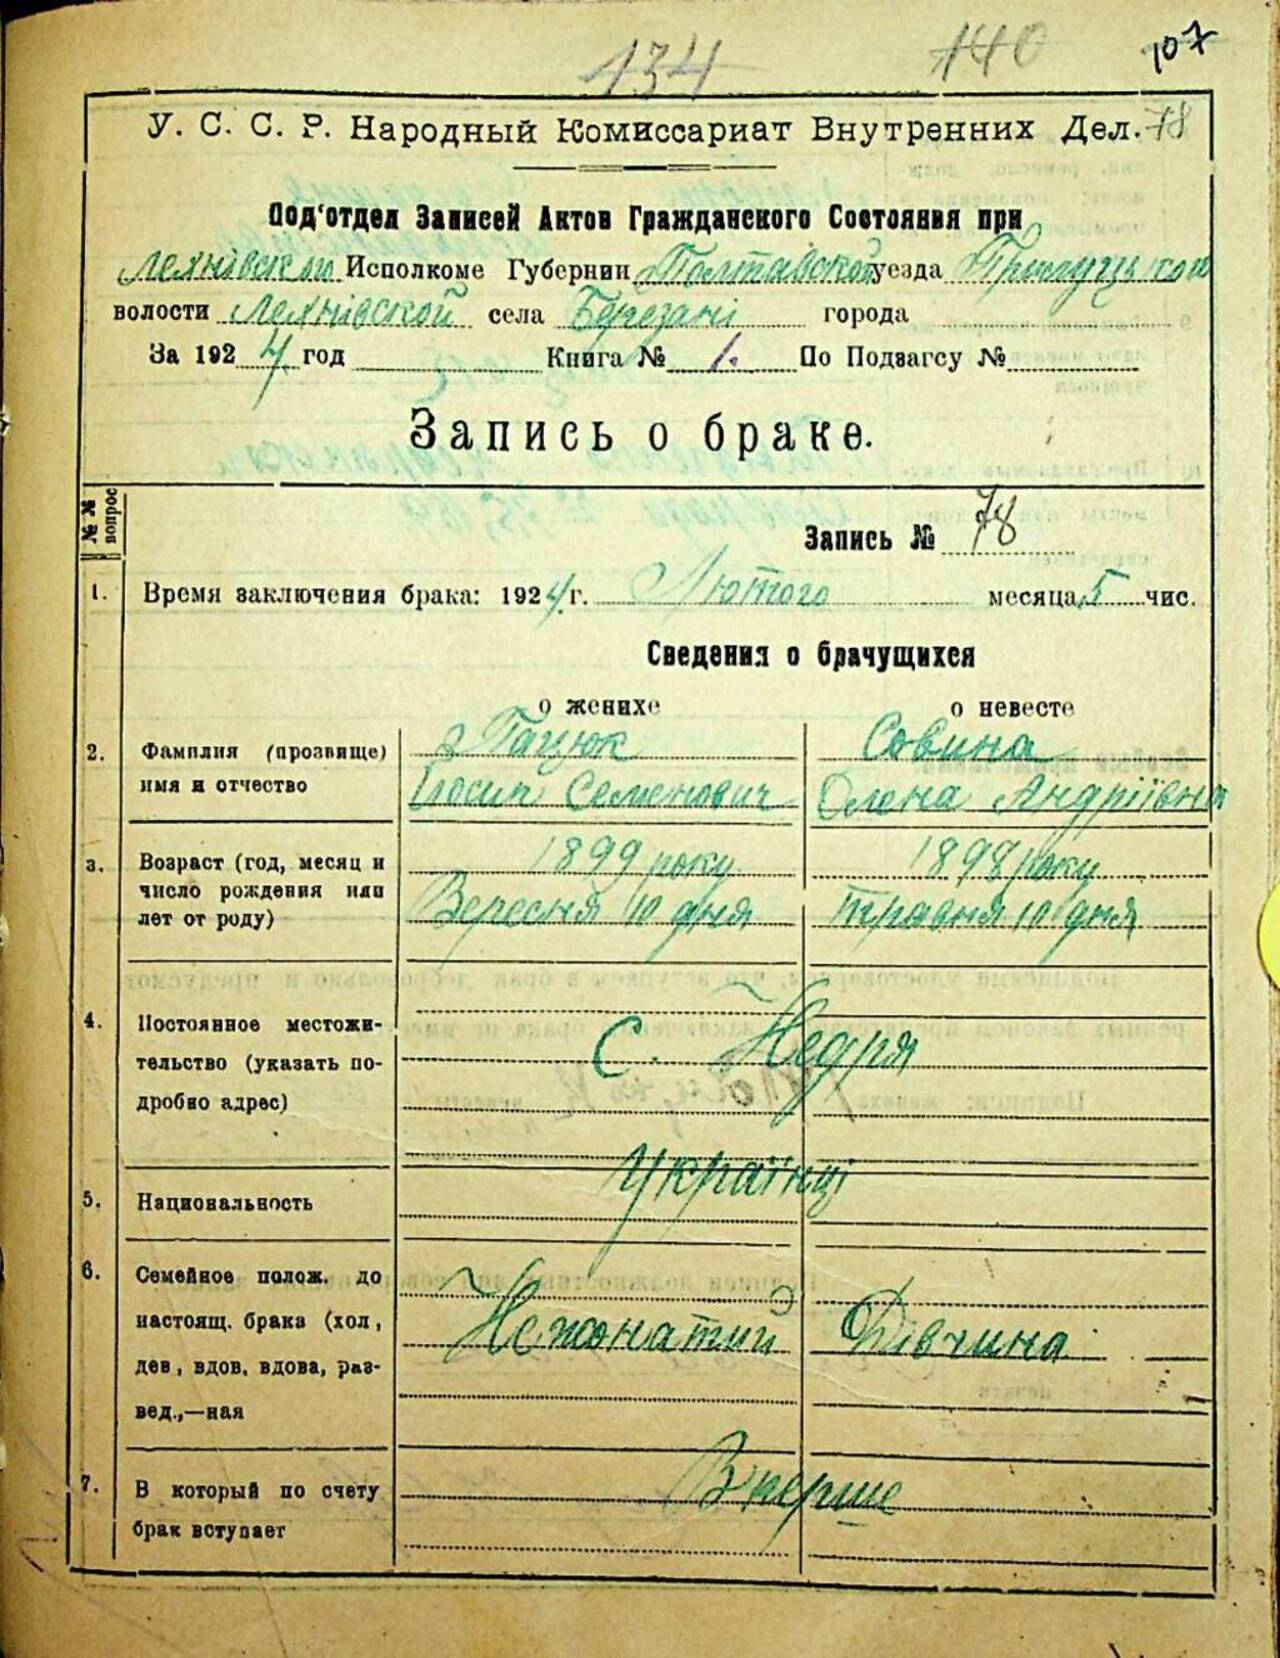 134 140 107
У. С. С. Р. Народный Комиссариат Внутренних Дел. 78
Под‘отдел Записей Актов Гражданского Состояния при
Исполкоме Губернии Полтавской уезда
волости села Березані города
За 1924 год Книга № 1. По Подзагсу №
Запись о браке.
№ № вопрос
Запись № 78
1. Время заключения брака: 1924 г. Лютого месяца 5 чис.
Сведения о брачущихся
о женихе о невесте
2. Фамилия (прозвище) Пацюк Совина
имя и отчество Йосип Семенович Олена Андріївна
3. Возраст (год, месяц и 1899 року 1898 року
число рождения или Вересня 10 дня травня 10 дня
лет от роду)
4. Постоянное местожи-
тельство (указать по- С. Недря
дробно адрес)
Українці
5. Национальность
6. Семейное полож. до
настоящ. брака (хол, Нежонатий Дівчина
дев, вдов, вдова, раз-
вед.,—ная
7. В который по счету Вперше
брак вступает